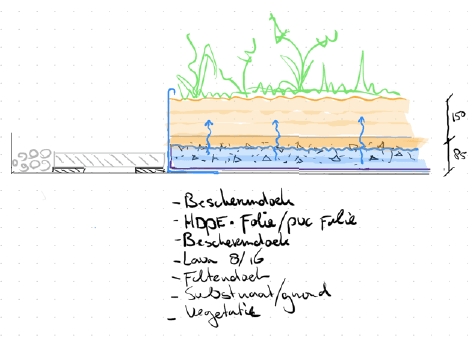 150
85
- Beschermdoek
- HDPE - Folie/pvc Folie
- Beschermdoek
- Lava 8/16
- Filterdoek
- Substraat/grond
- Vegetatie